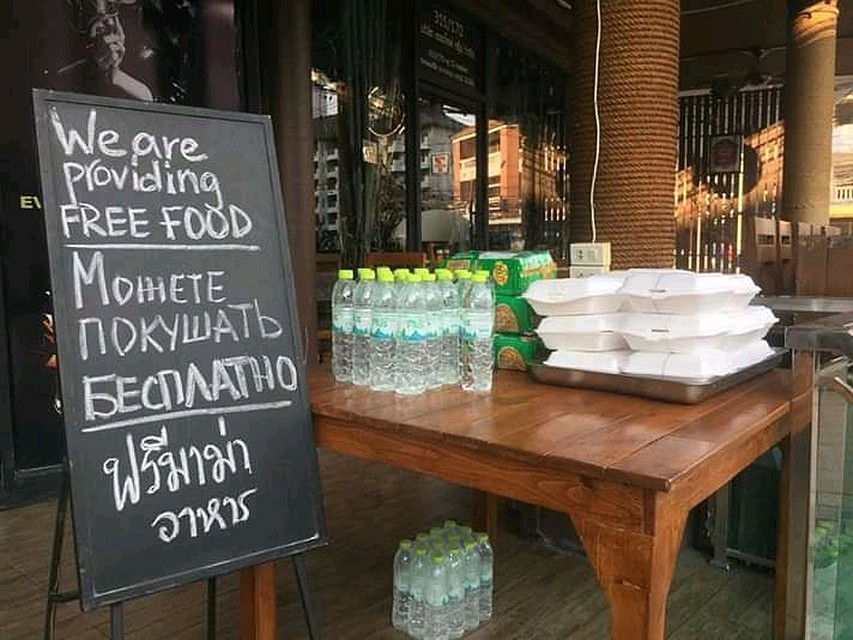 We are
providing
FREE FOOD
МОЖЕТЕ
ПОКУШАТЬ
БЕСПЛАТНО
ฟรีมาม่า
อาหาร
315/170